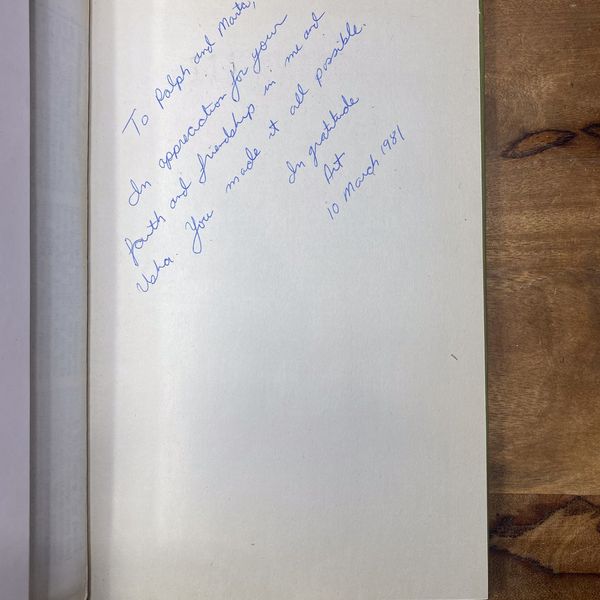 To Ralph and Marta,
In appreciation for your
faith and friendship in me and
Usha. You made it all possible.
In gratitude
Art
10 March 1981